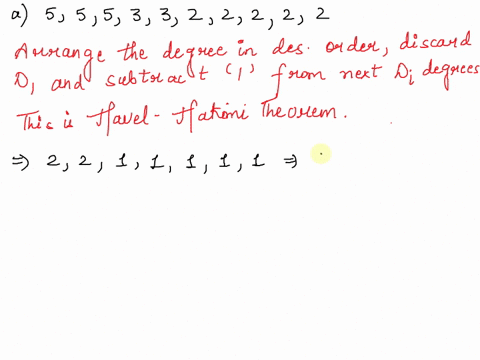 a) 5, 5, 5, 3, 3, 2, 2, 2, 2, 2
Arrange the degree in des. order, discard
D, and subtract '1' from next Di degrees
This is Havel-Hakimi Theorem.
⇒ 2, 2, 1, 1, 1, 1, 1 ⇒